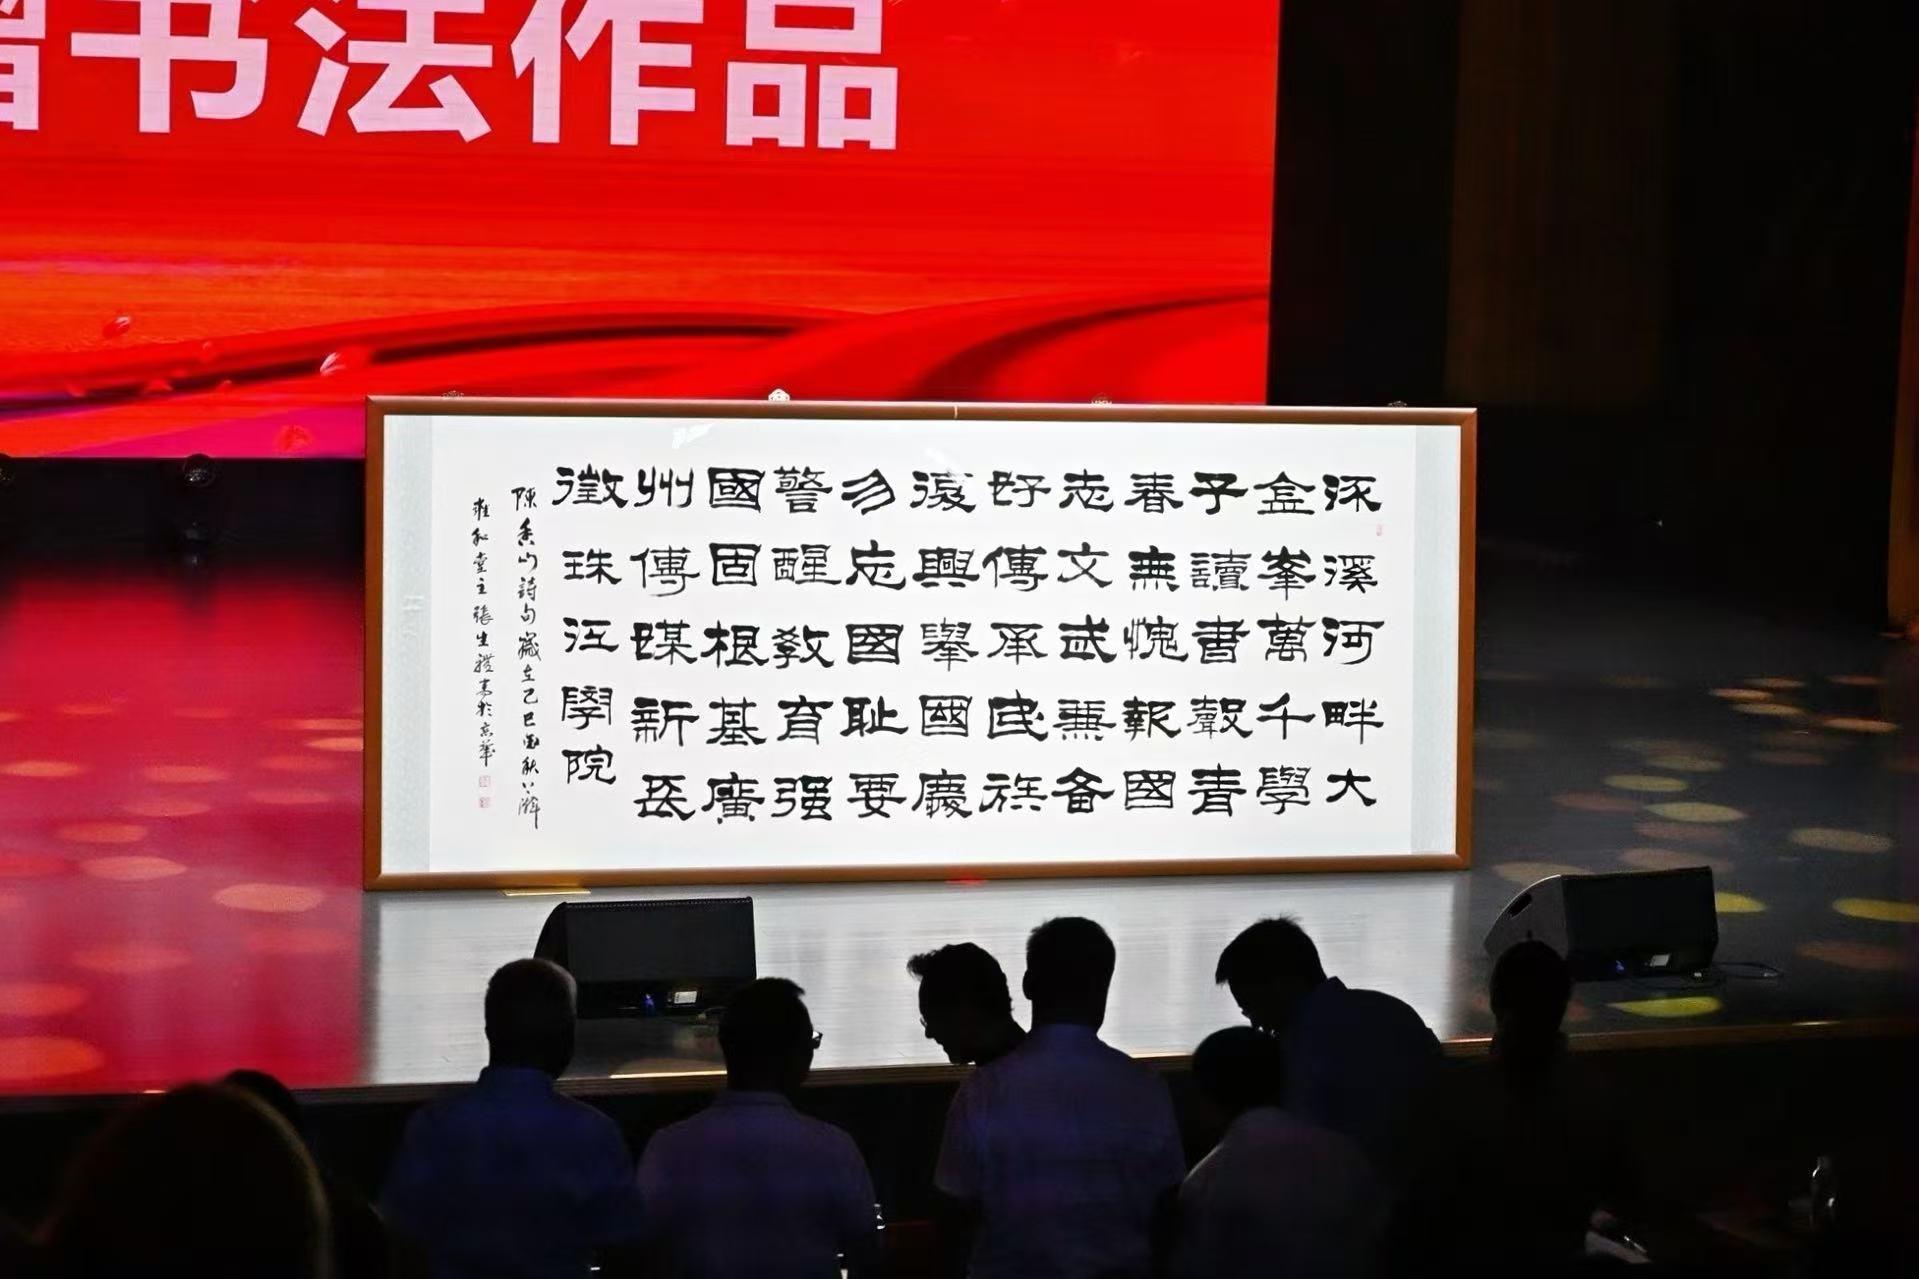 书法作品
流溪河畔大
金峯萬千學
子讀書聲青
春無愧報國
志文武兼备
好傳承民族
復興舉國慶
勿忘國耻要
警醒教育强
國固根基廣
州傳媒新長
徵珠江學院
陳香山詩句歲在乙巳秋
雍和堂主張生禮書於京華